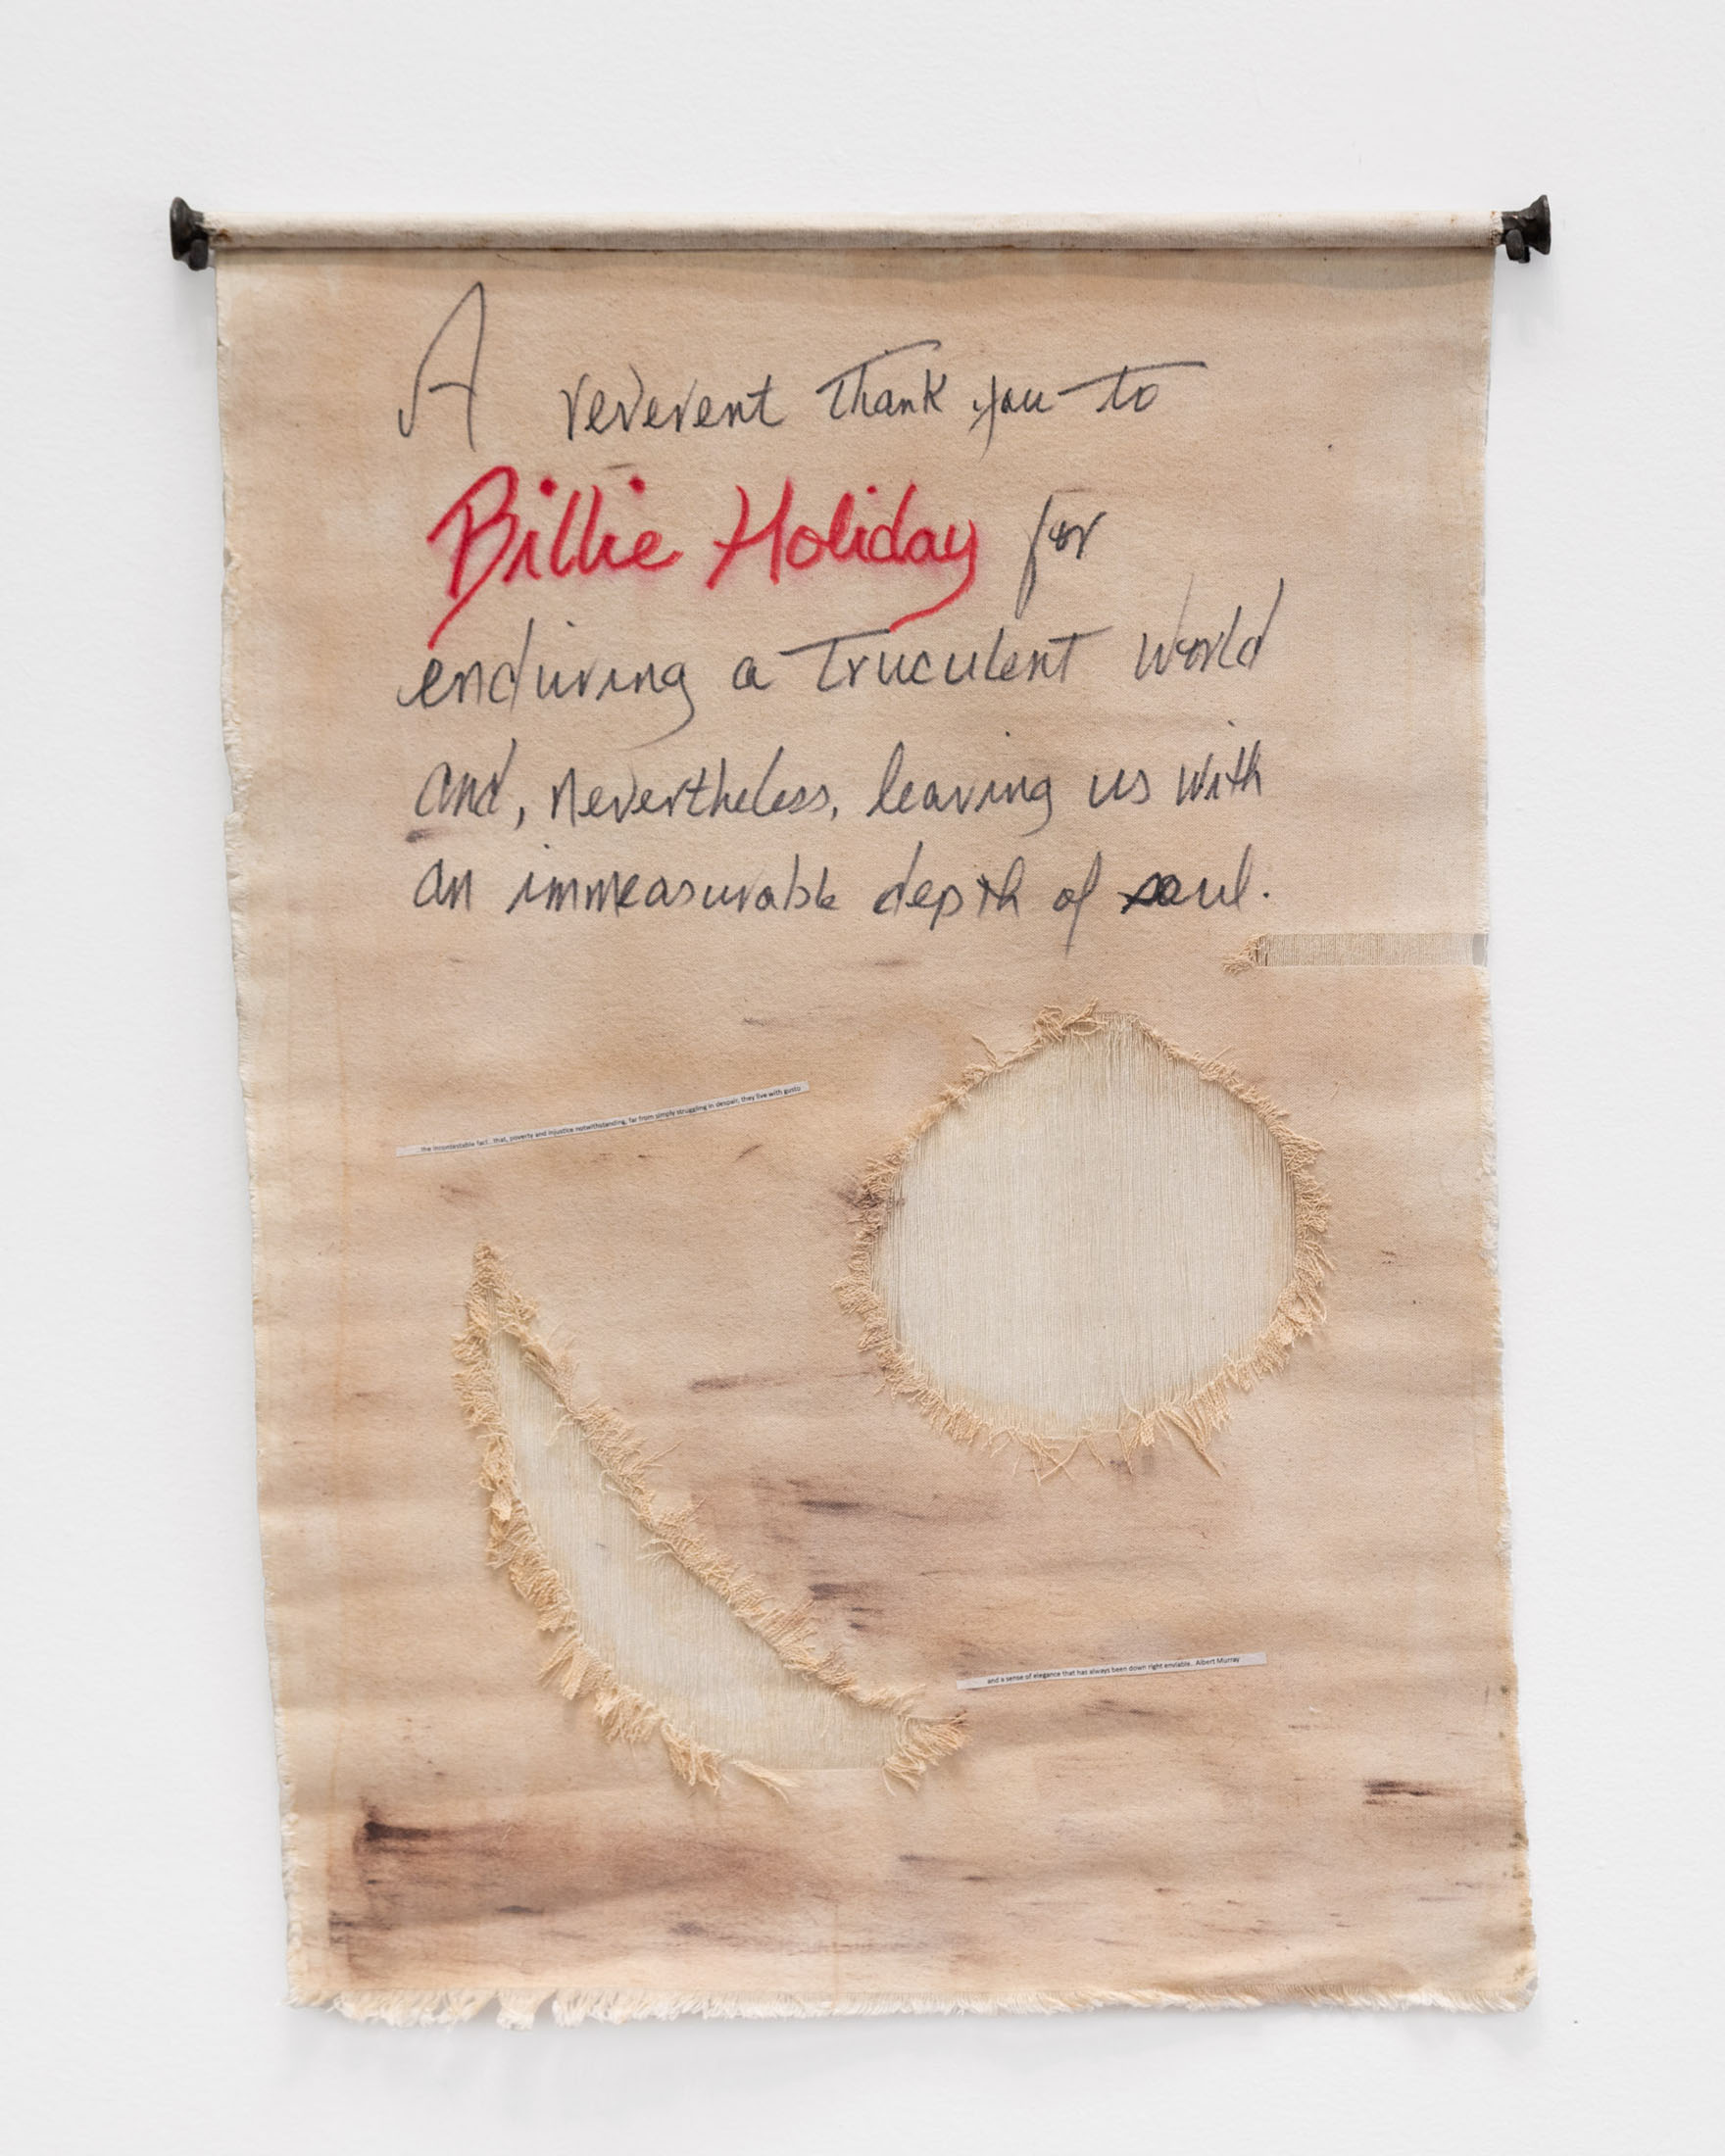 A reverent thank you to
Billie Holiday for
enduring a truculent world
and, nevertheless, leaving us with
an immeasurable depth of soul.
the incontestable fact.. that, poverty and injustice notwithstanding, far from simply struggling in despair, they live with gusto
and a sense of elegance that has always been down right enviable.. Albert Murray